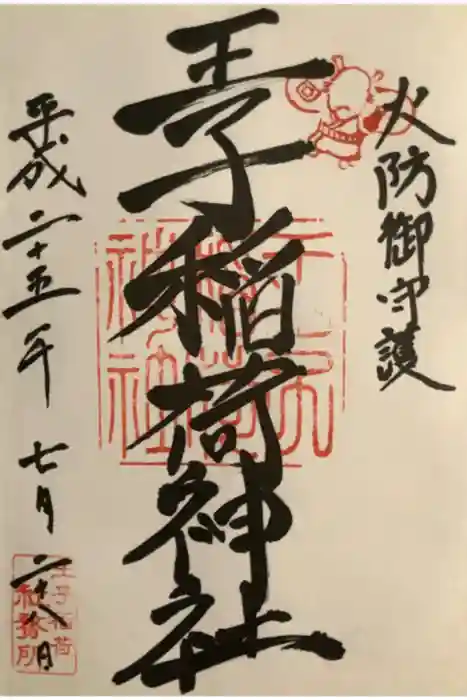 火防御守護
王子稲荷神社
平成二十五年七月二十八日
王子稲荷
社務所